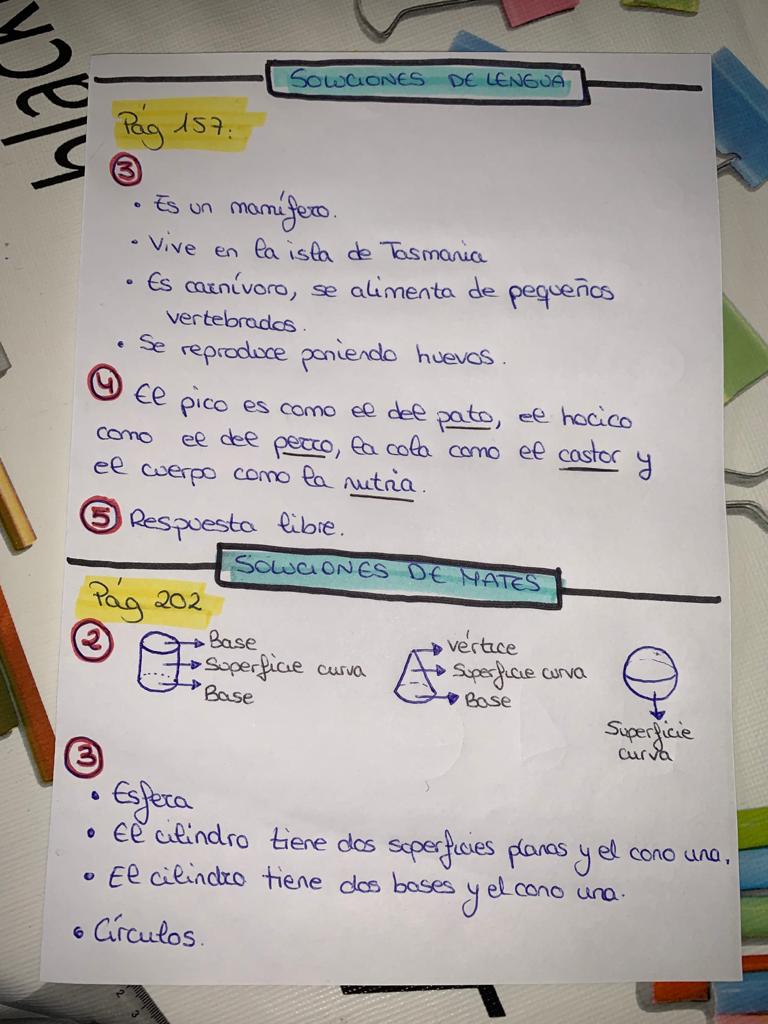 SOLUCIONES DE LENGUA
Pág 157:
3
• Es un mamífero.
• Vive en la isla de Tasmania
• Es carnívoro, se alimenta de pequeños
vertebrados.
• Se reproduce poniendo huevos.
4 El pico es como el del pato, el hocico
como el del perro, la cola como el castor y
el cuerpo como la nutria.
5 Respuesta libre.
SOLUCIONES DE MATES
Pág 202
2
Base
Superficie curva
Base
Vértice
Superficie curva
Base
Superficie
curva
3
• Esfera
• El cilindro tiene dos superficies planas y el cono una.
• El cilindro tiene dos bases y el cono una.
• Círculos.